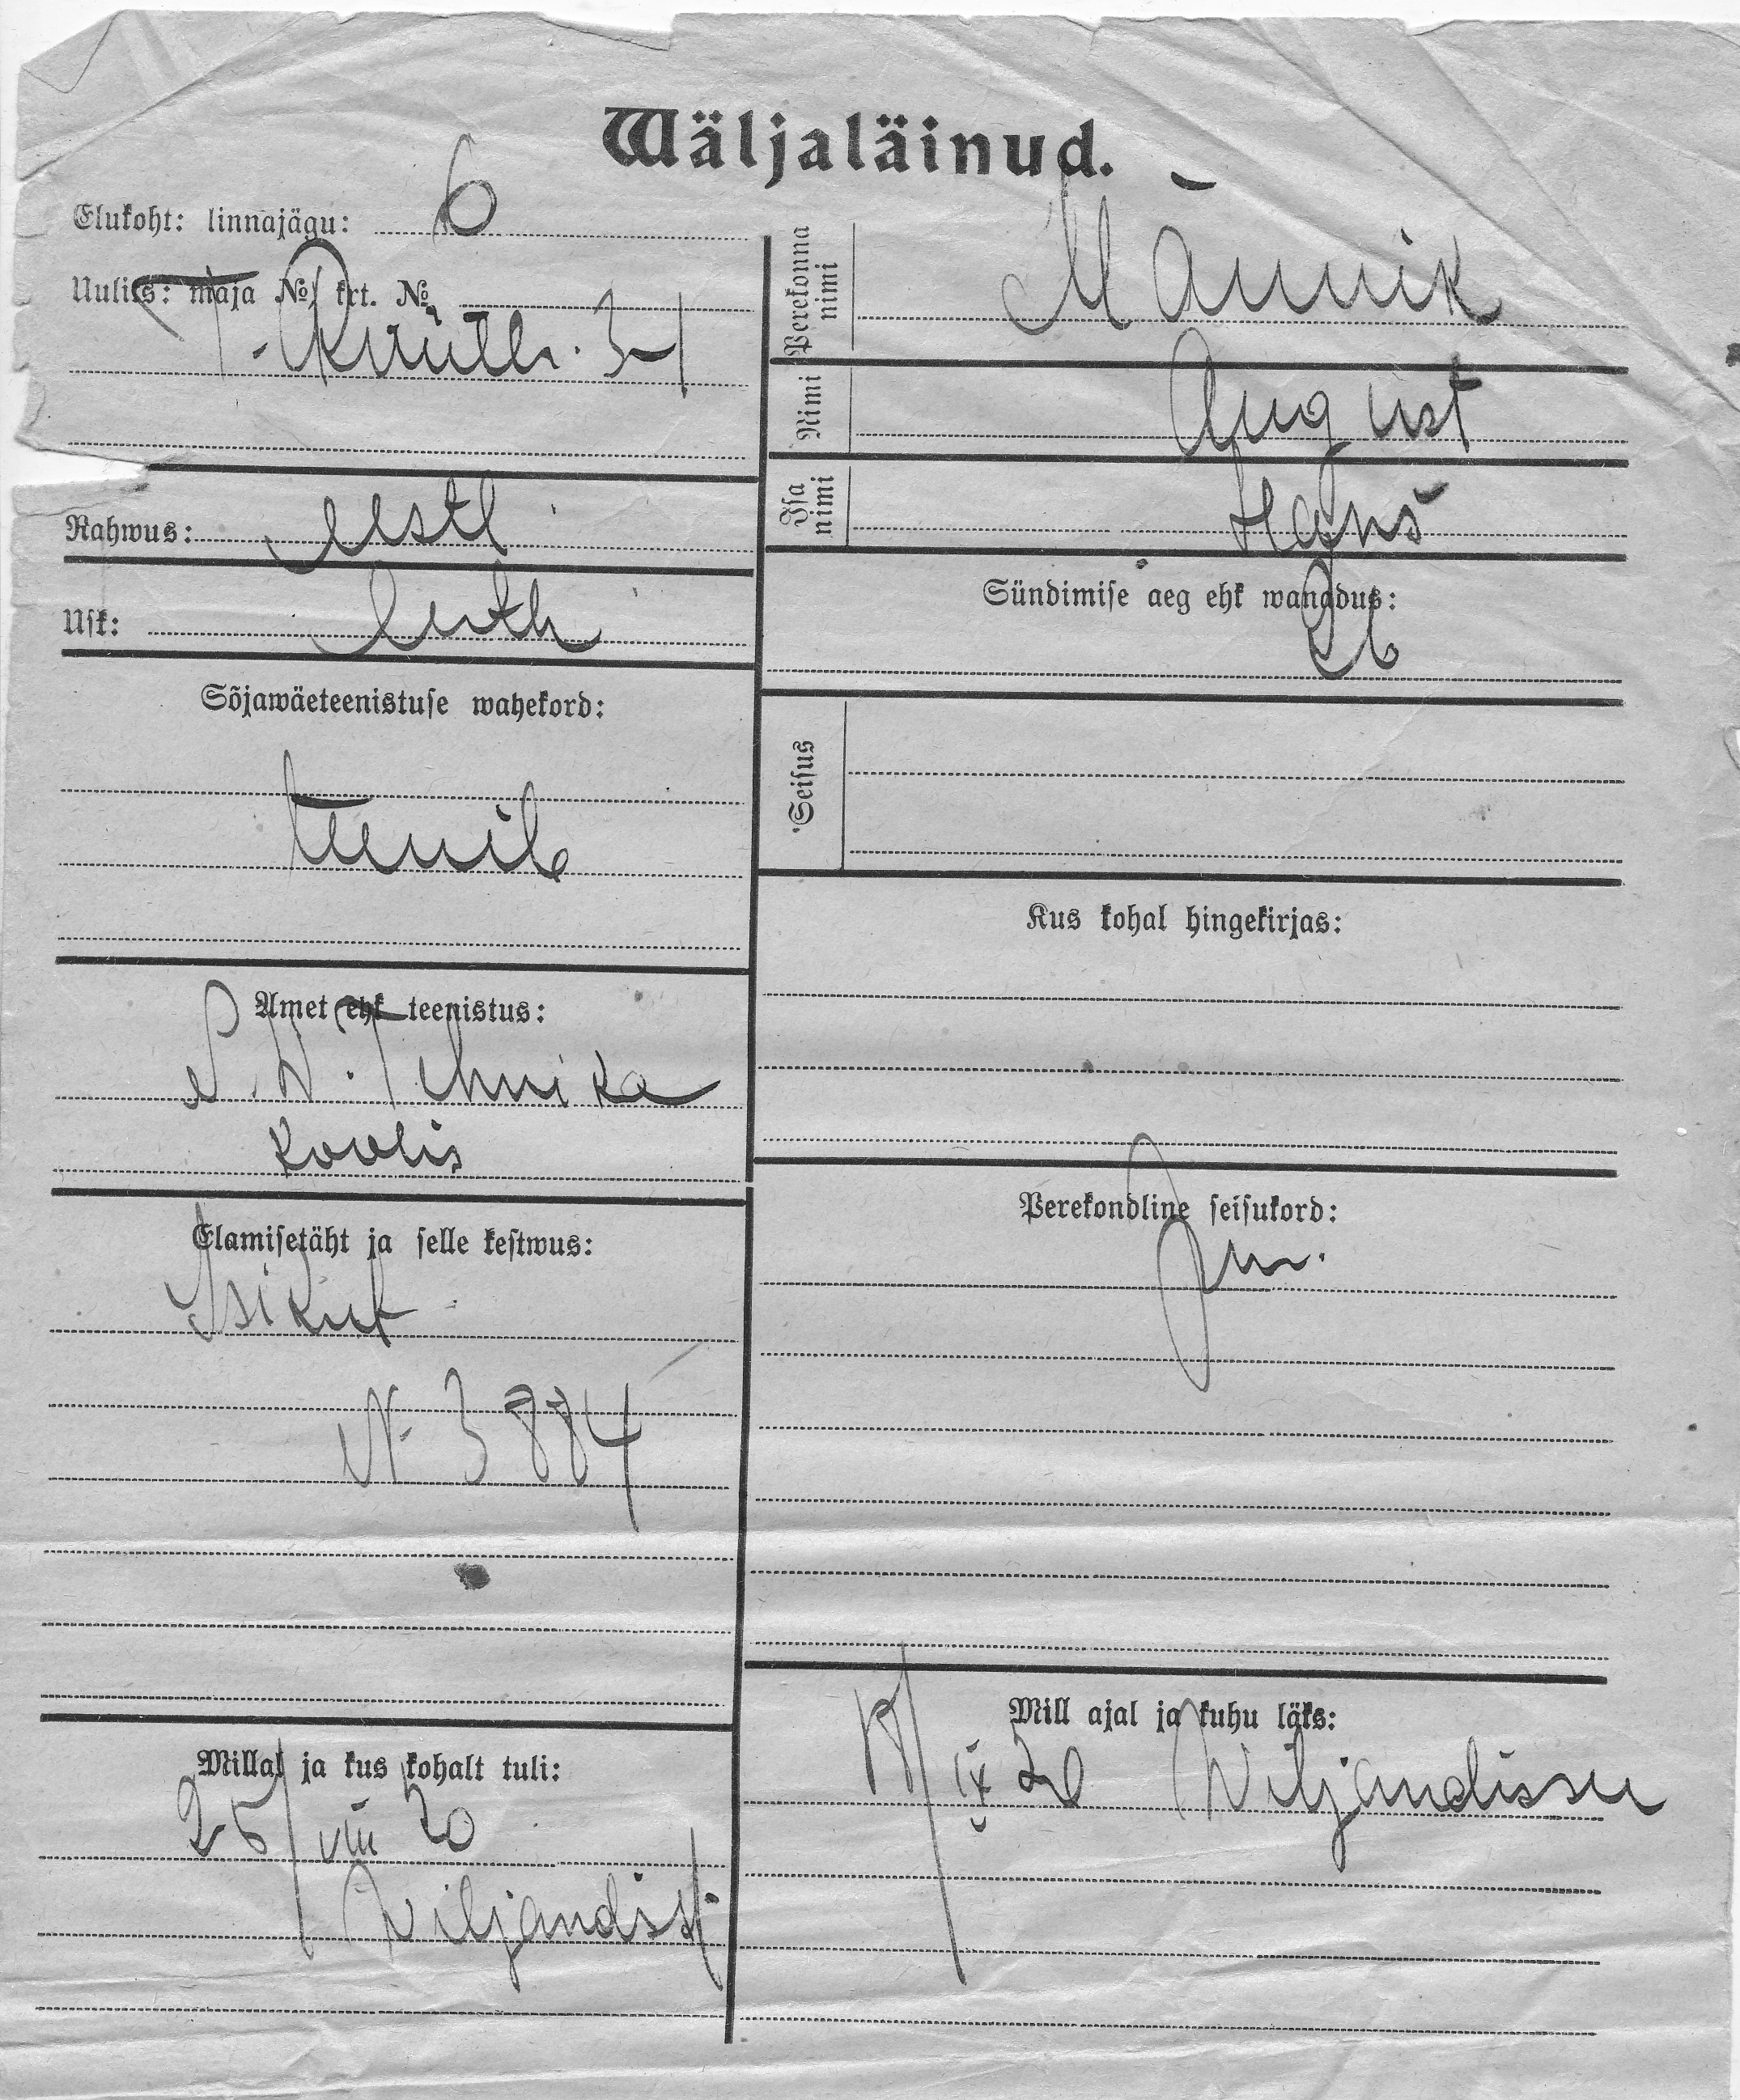 Wäljaläinud.
Elukoht: linnajägu: 6
Uulits: maja № krt. №
Rahwus: eestl
Usk: luth
Sõjawäeteenistuse wahekord:
teenib
Amet ehk teenistus:
S. W. Tehnika
koolis
Elamisetäht ja selle kestwus:
Isikut
N 3884
Millal ja kus kohalt tuli:
25/VIII 20
Wiljandist
Perekonna nimi Männik
Nimi August
Isa nimi Hans
Sündimise aeg ehk wanadus:
26
Seisus
Kus kohal hingekirjas:
Perekondline seisukord:
Mill ajal ja kuhu läks:
IX 20 Wiljandisse